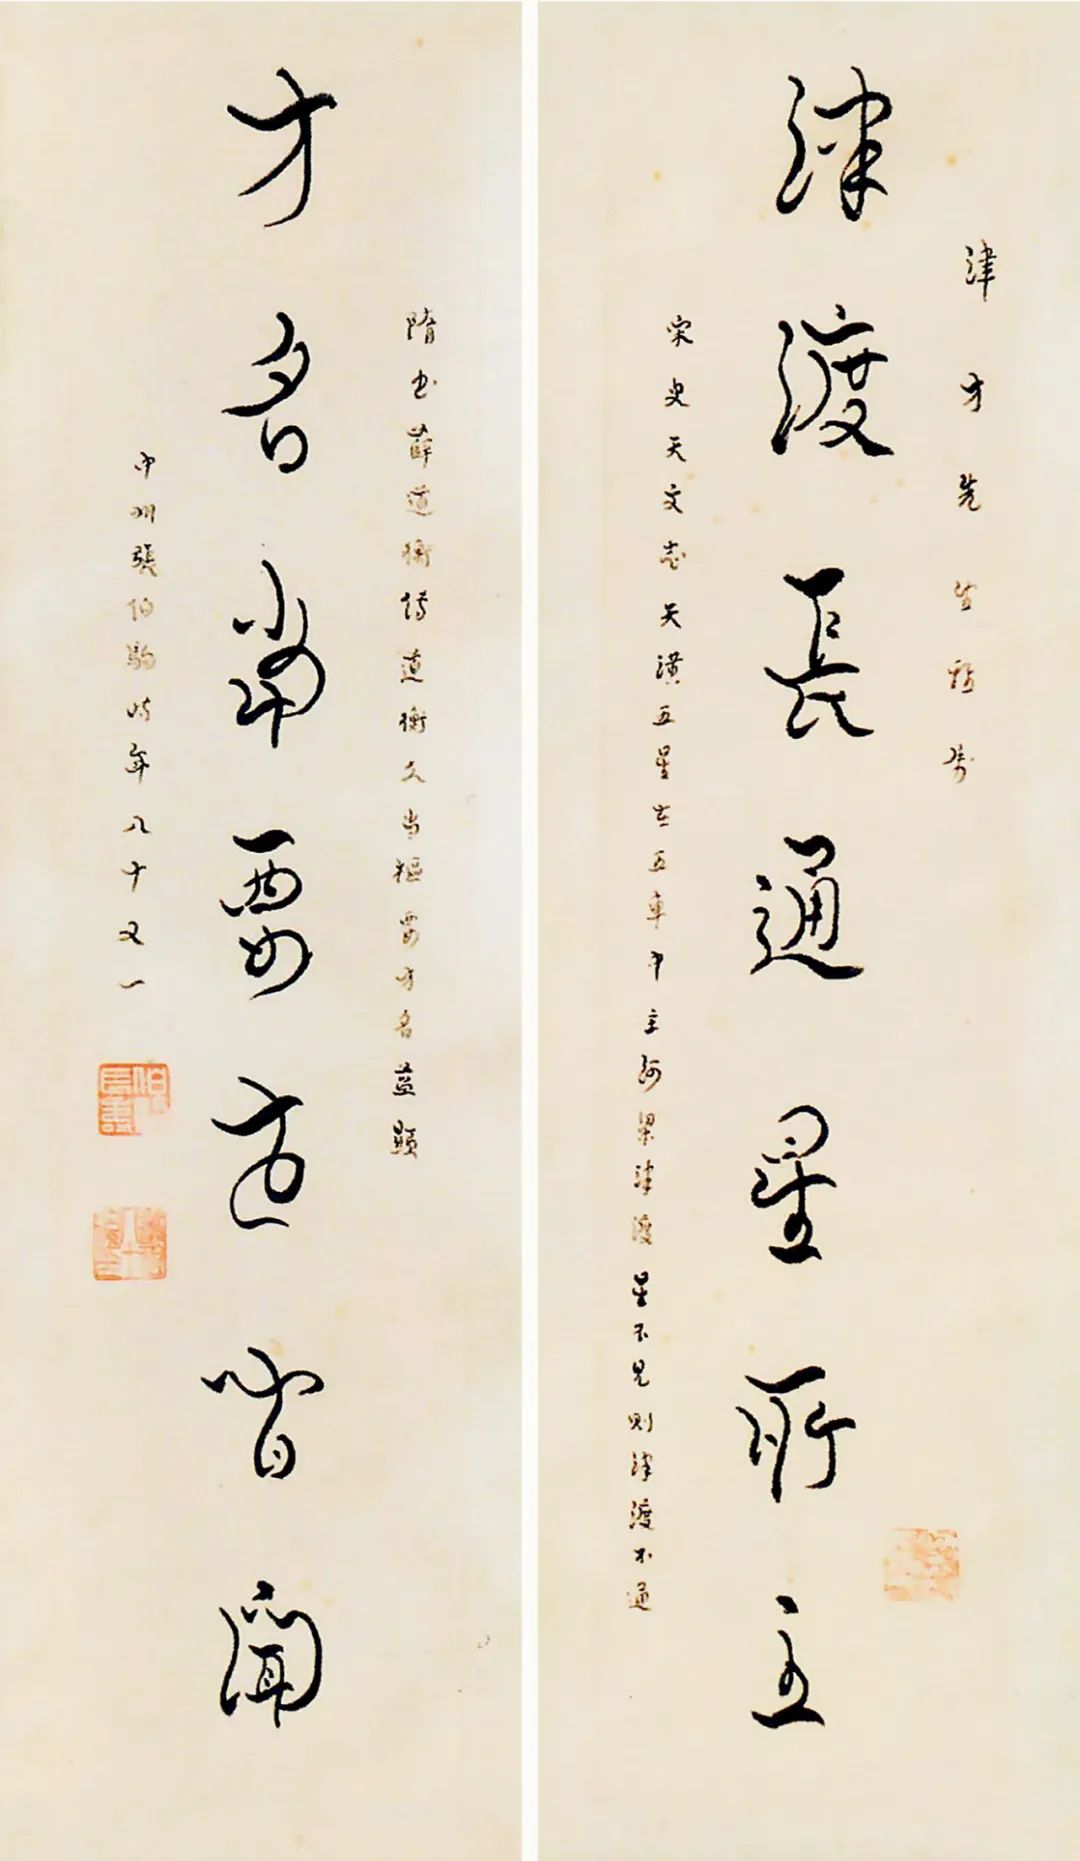 津才先生雅属
津渡長通星所主
宋史天文志天潢五星在五車中主河梁津渡星不見則津渡不通
隋书薛道衡傳道衡久当樞要才名益顯
才名常要遠皆聞
中州張伯駒時年八十又一